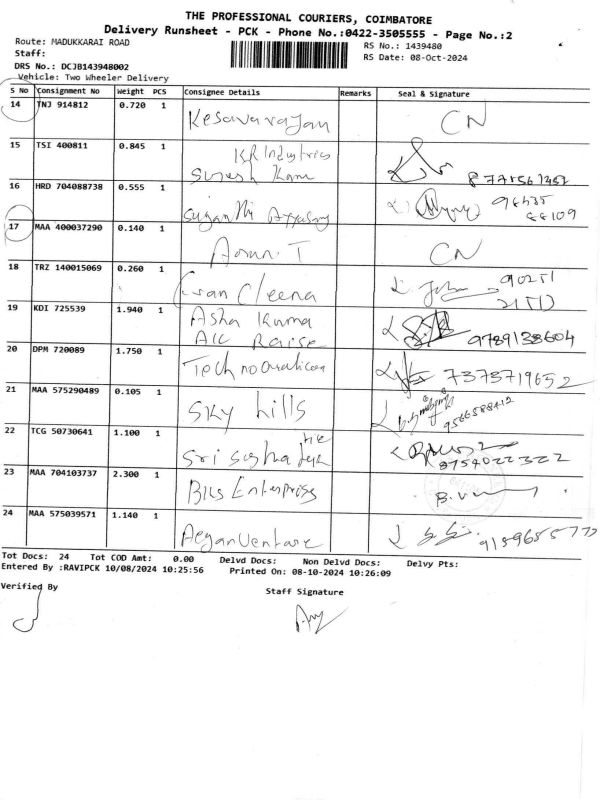 THE PROFESSIONAL COURIERS, COIMBATORE
Delivery Runsheet - PCK - Phone No.:0422-3505555 - Page No.:2
Route: MADUKKARAI ROAD
RS No.: 1439480
Staff:
RS Date: 08-Oct-2024
DRS No.: DCJB143948002
Vehicle: Two Wheeler Delivery
S No Consignment No Weight PCS Consignee Details Remarks Seal & Signature
14 TNJ 914812 0.720 1 Kesavarajan CN
15 TSI 400811 0.845 1 KR Industries
Suresh
16 HRD 704088738 0.555 1 Suganthi 98435
88109
17 MAA 400037290 0.140 1 Arun T CN
18 TRZ 140015069 0.260 1 Cleena John 90251
21513
19 KDI 725539 1.940 1 Asha Kuma
AIC Raise 9789138604
20 DPM 720089 1.750 1 7373719652
21 MAA 575290489 0.105 1 Sky hills 9566588412
22 TCG 50730641 1.100 1 Sri 8754022322
23 MAA 704103737 2.300 1 BKS Enterprises
24 MAA 575039571 1.140 1 Aegan Venture
Tot Docs: 24 Tot COD Amt: 0.00 Delvd Docs: Non Delvd Docs: Delvy Pts:
Entered By :RAVIPCK 10/08/2024 10:25:56 Printed On: 08-10-2024 10:26:09
Verified By
Staff Signature